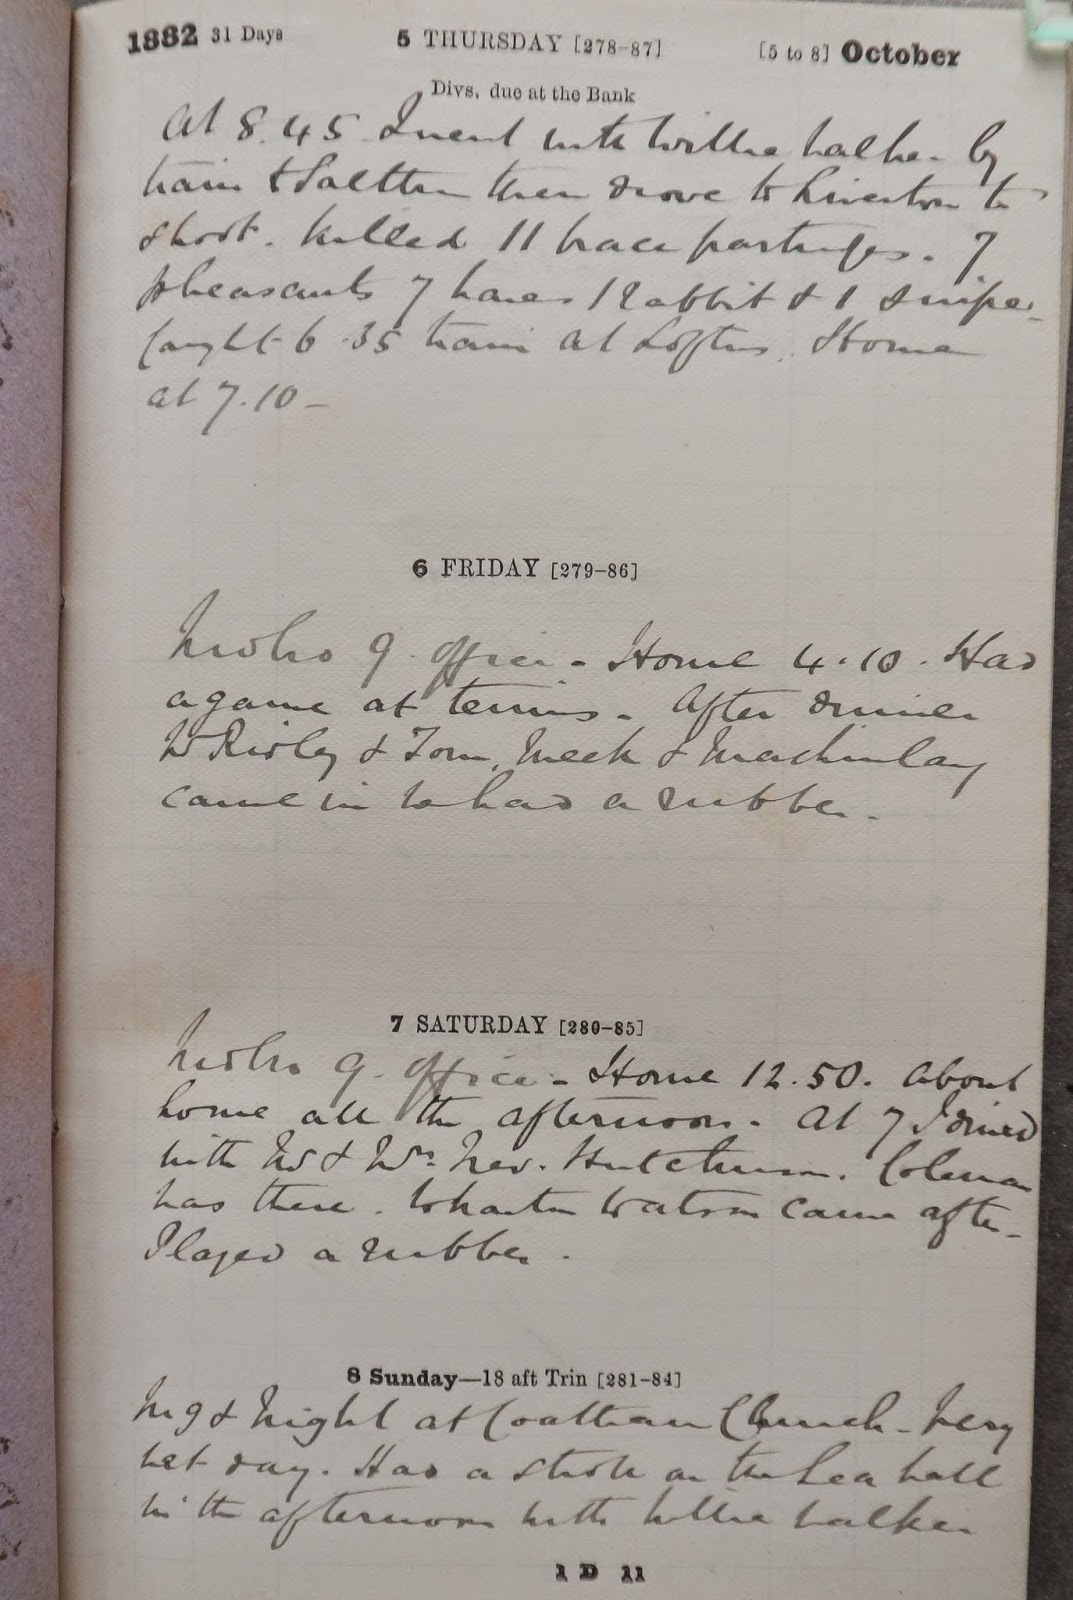 1882 31 Days 5 THURSDAY [278-87] [5 to 8] October
Divs. due at the Bank
At 8.45 I went with Willie Walker by
train to Saltburn then drove to Liverton to
shoot. Killed 11 brace partridges. 7
pheasants 7 hares 1 Rabbit & 1 snipe
Caught 6.35 train at Loftus. Home
at 7.10 -
6 FRIDAY [279-86]
Midbro 9. Office - Home 4.10. Had
a game at tennis. After dinner
W Ridley & Tom, Meek & Mackinlay
came in to had a rubber.
7 SATURDAY [280-85]
Midbro 9. Office - Home 12.50. About
home all the afternoon. At 7 I dined
with Mr & Mrs Hutchinson. Coleman
was there. Wharton Watson came after.
Played a rubber.
8 Sunday—18 aft Trin [281-84]
Mg & Night at Coatham Church - Very
wet day. Had a stroll on the Sea wall
in the afternoon with Willie Walker
1 D 11